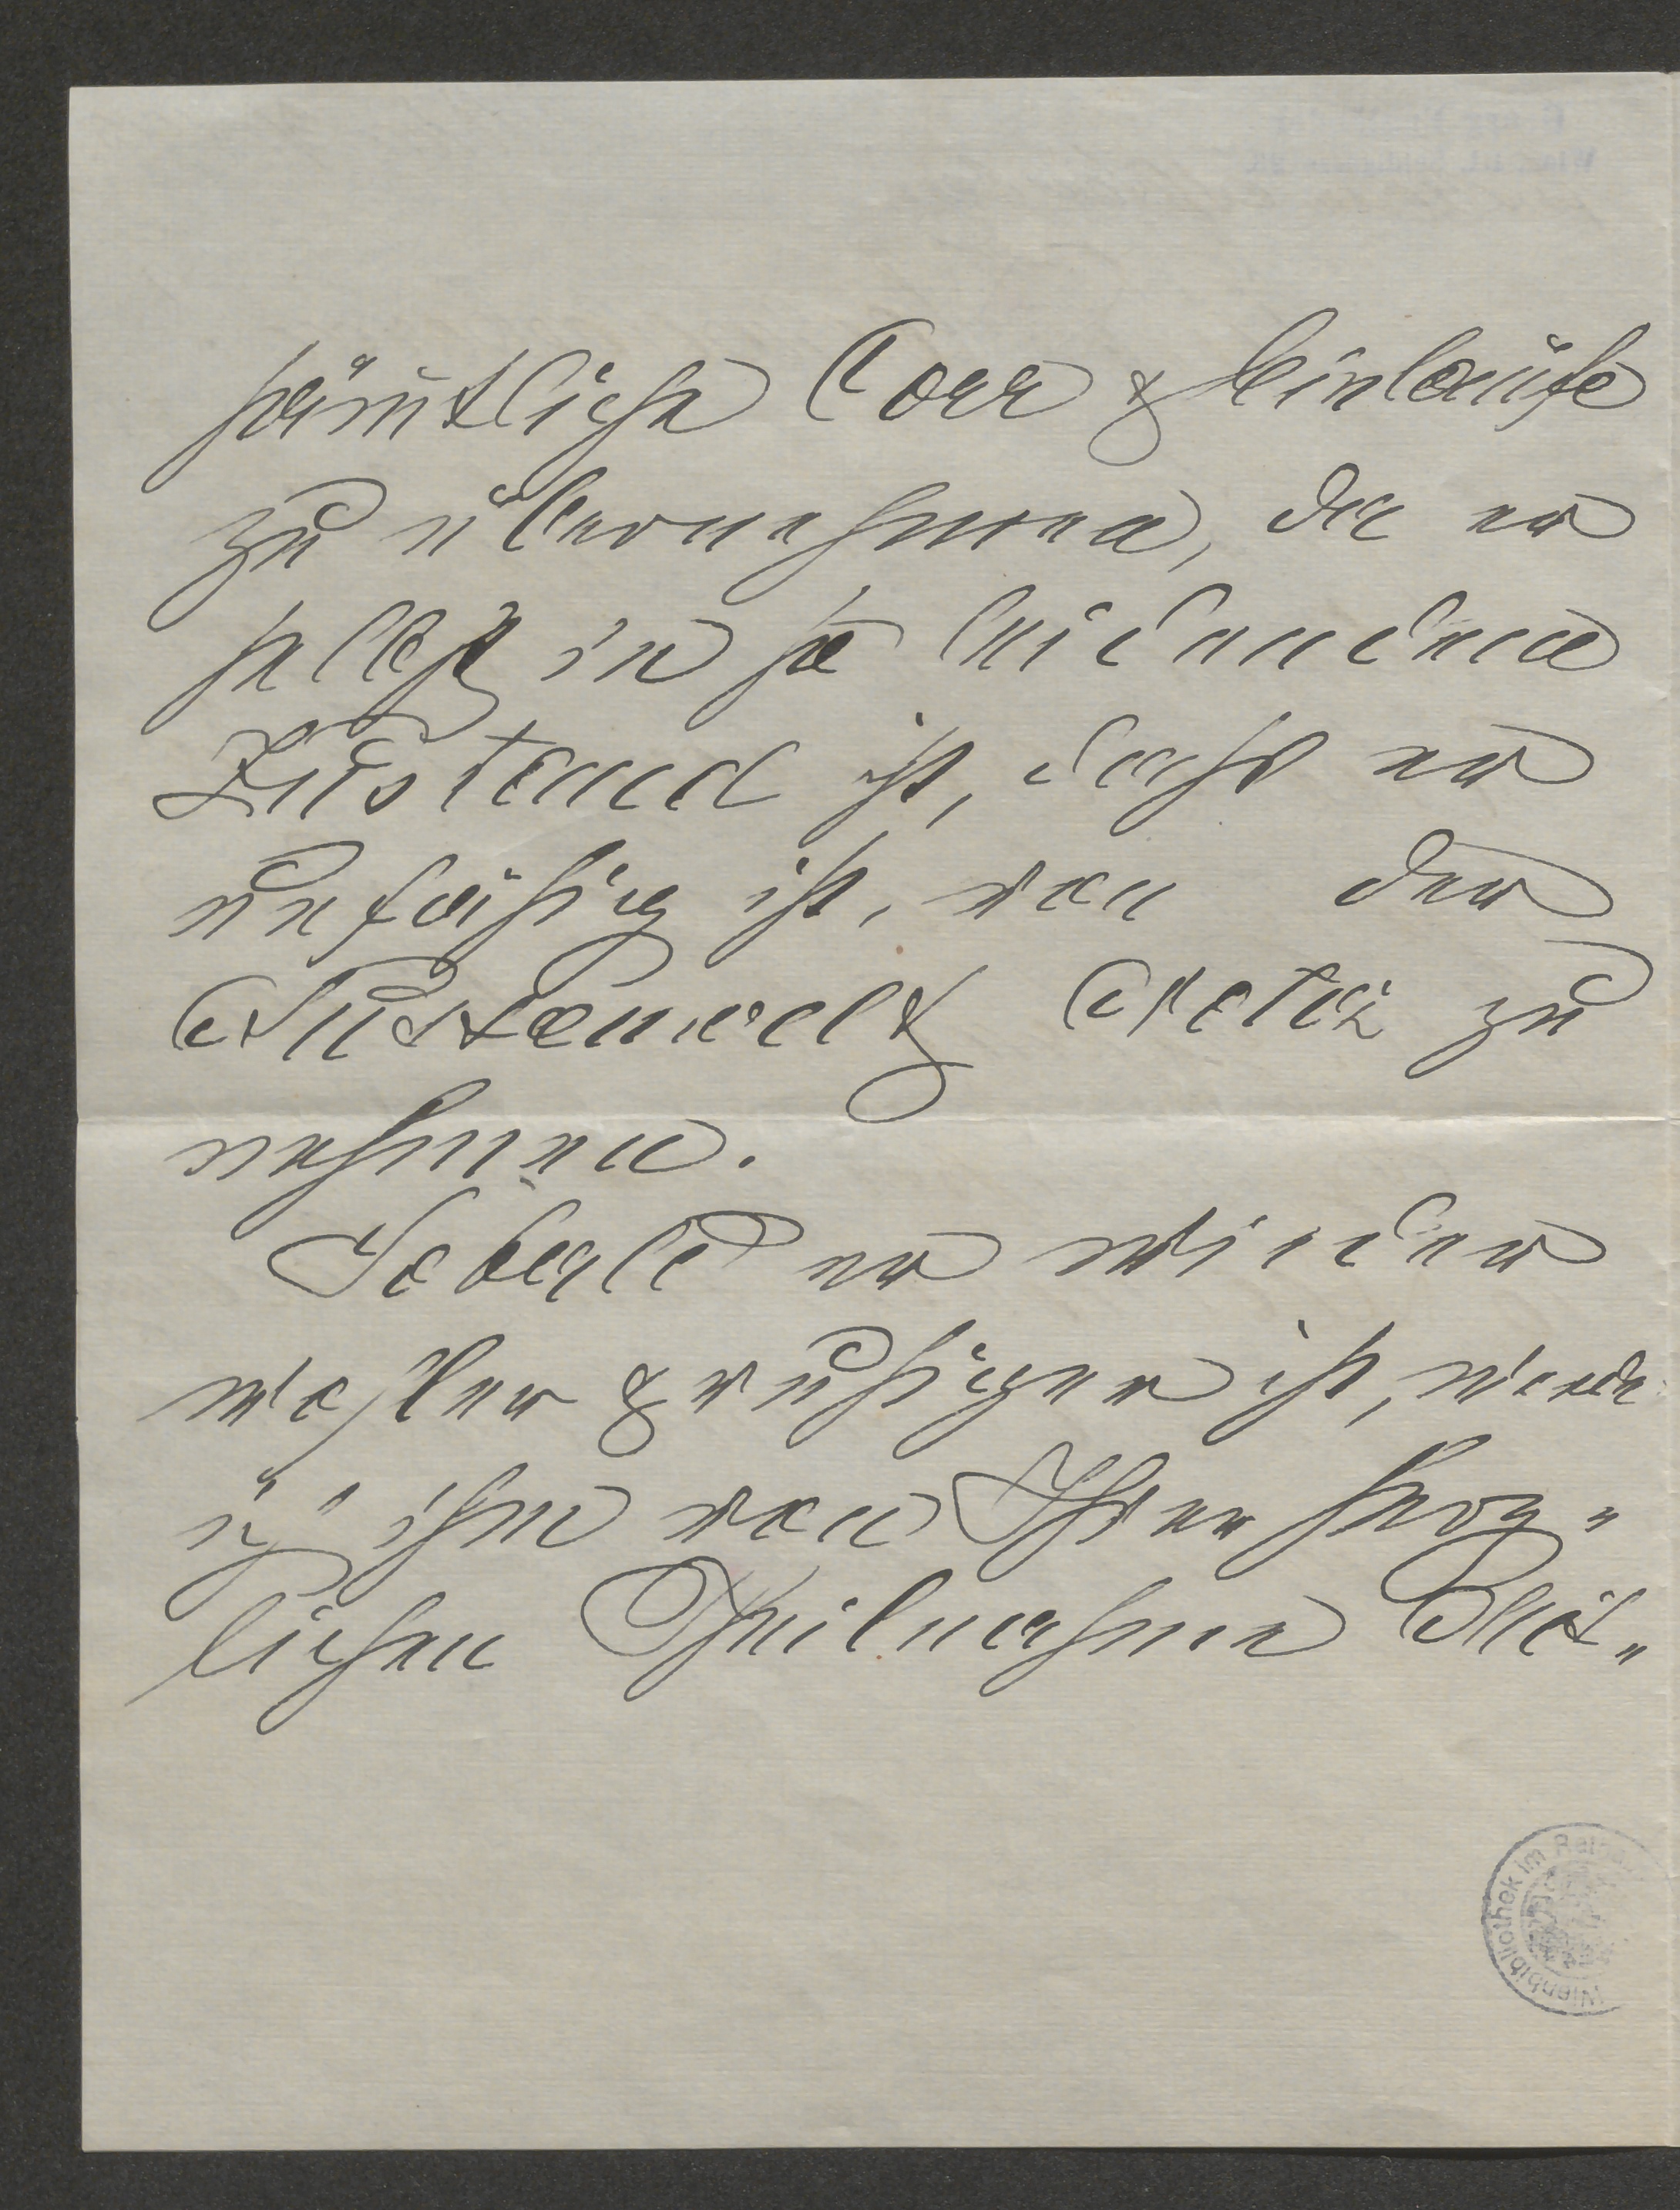 sämtliche Corr & Einläufe
zu übernehmen, da er
selbst in so leidenden
Zustand ist, dass er
unfähig ist, von der
Aussenwelt Notiz zu
nehmen.
Sobald er wieder
wohler & ruhiger ist, werde
ich ihm von Ihrer herz„
lichen Theilnahme Mit„
Wienbibliothek im